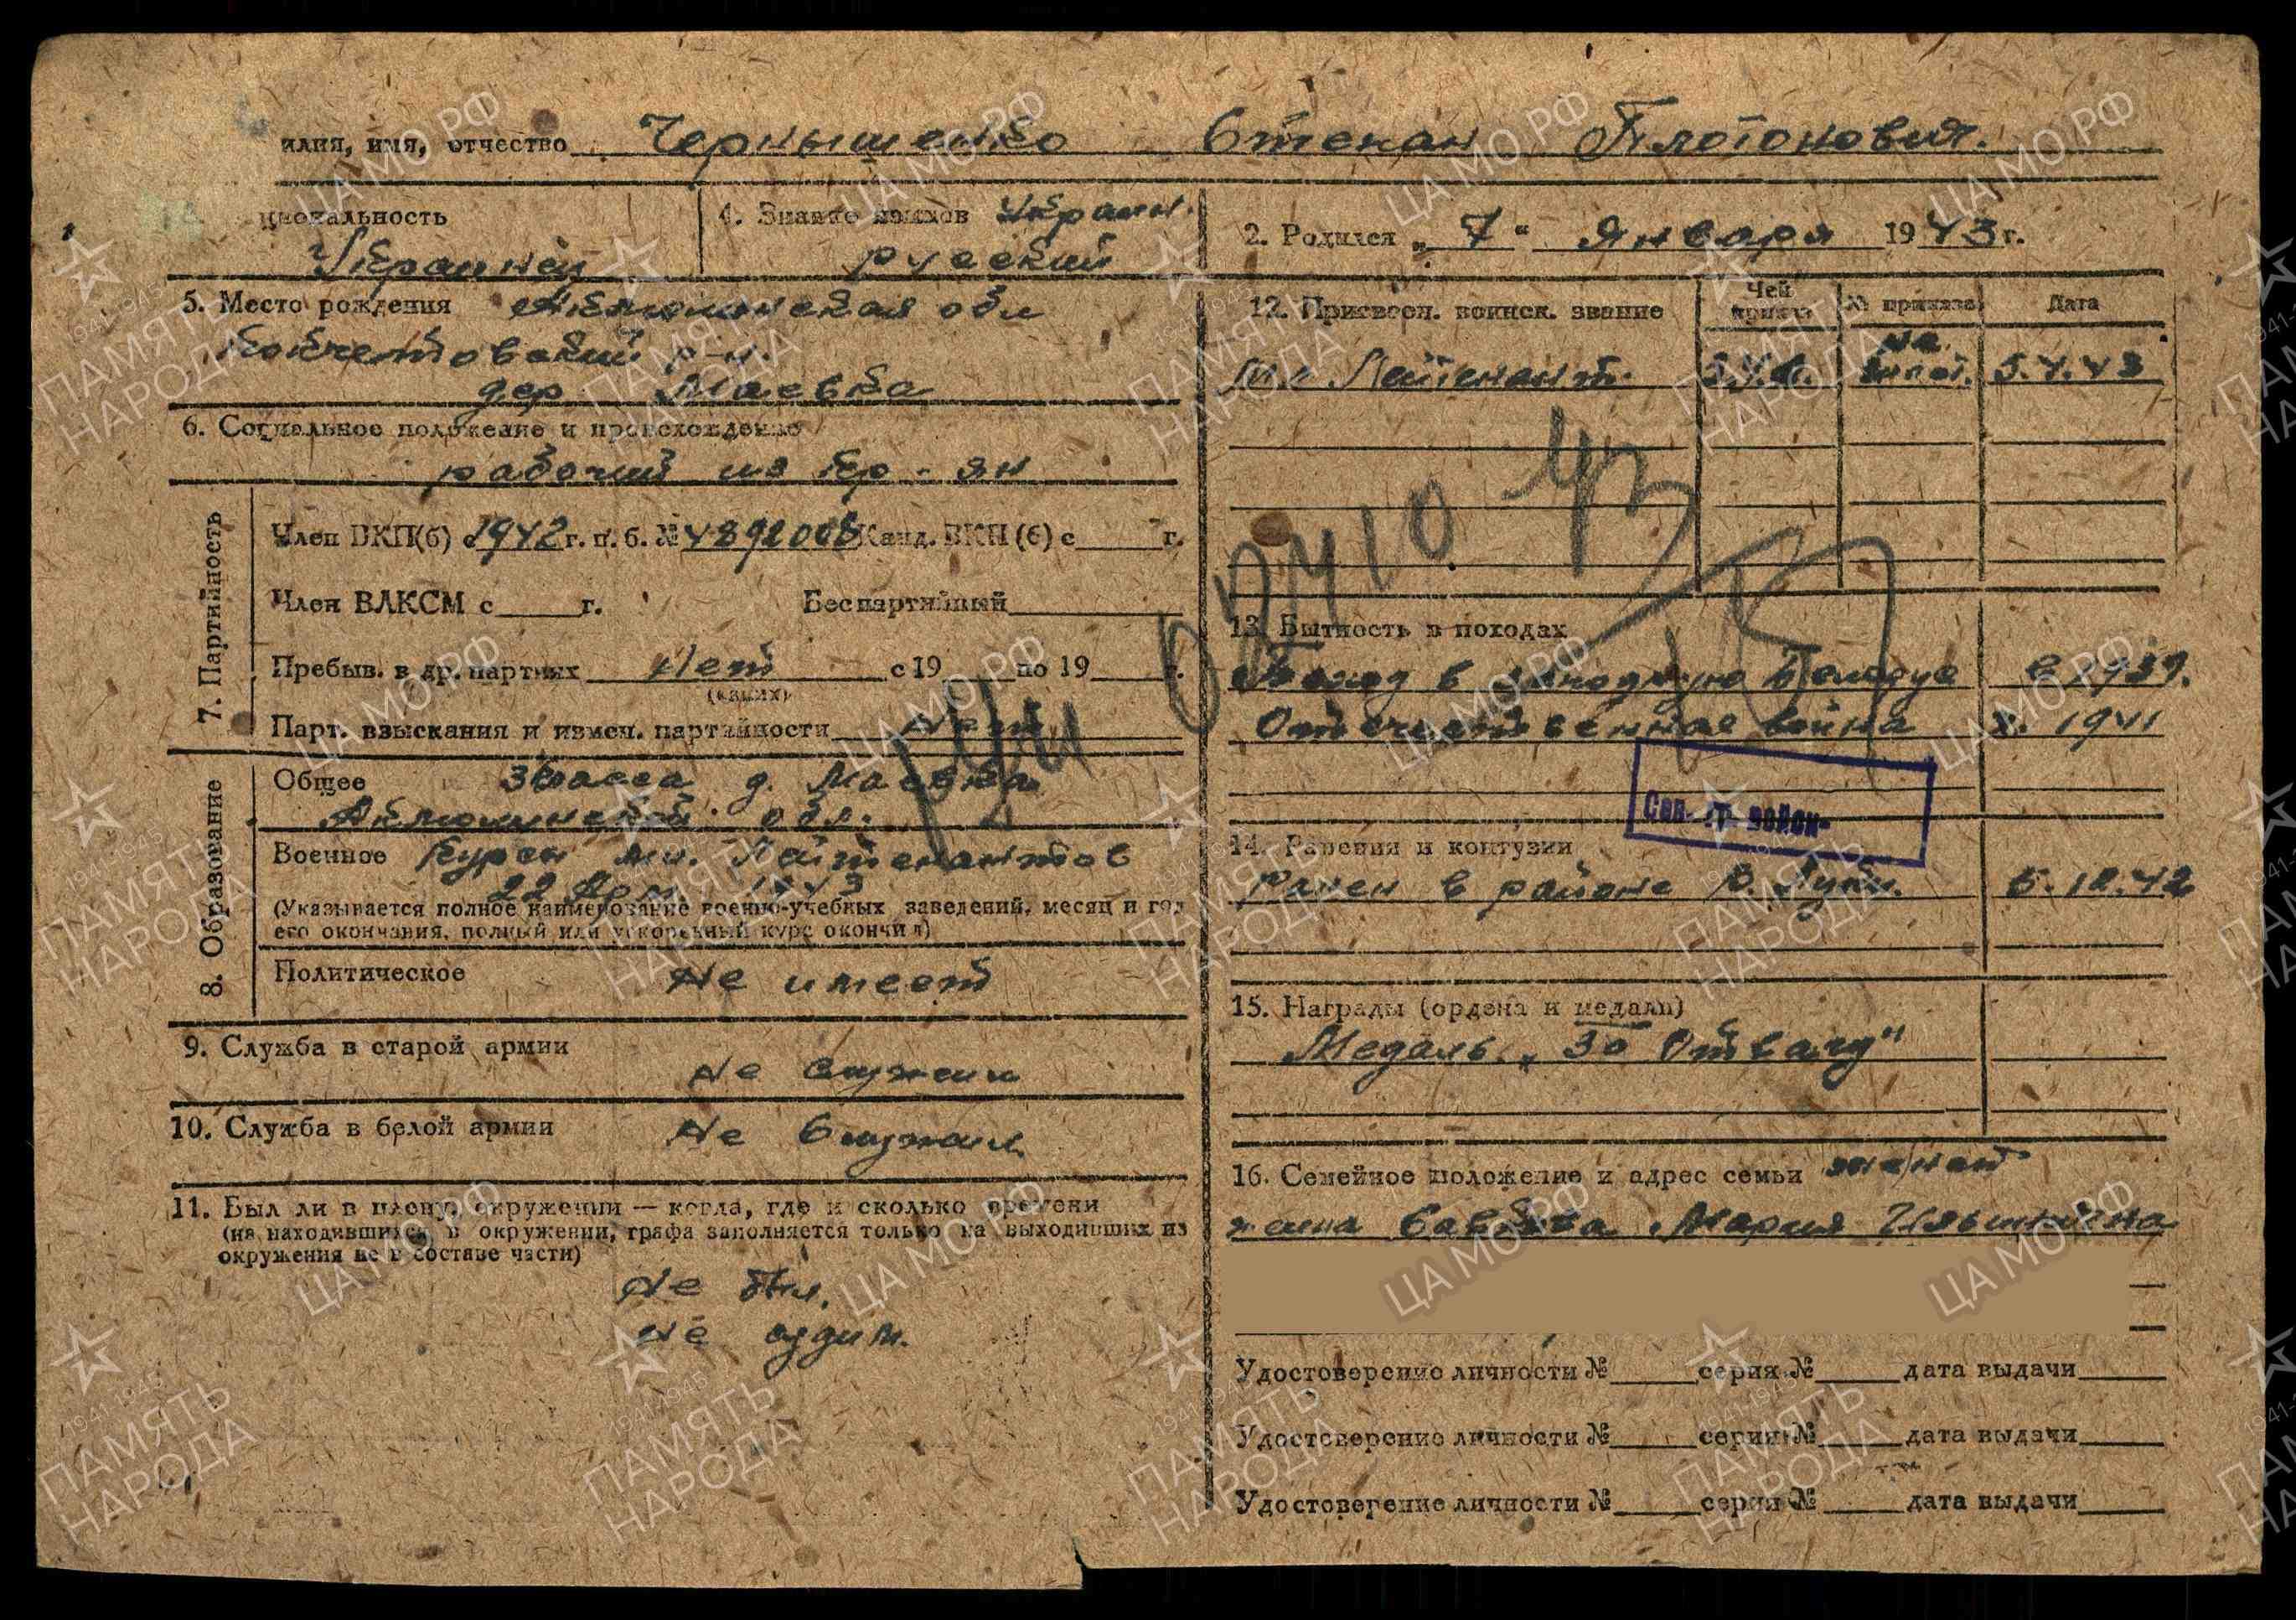 илия, имя, отчество Чернышенко Степан Плотонович.
циональность
Украинец
4. Знание языков Украин.
русский
2. Родился „7“ Января 1943 г.
5. Место рождения Акмолинская обл
Кокчетовский р-н.
дер Маевка
6. Социальное положение и происхождение
рабочий из кр-ян
7. Партийность
Член ВКП(б) с 1942 г. п. б. № 4892008 Канд. ВКП(б) с г.
Член ВЛКСМ с г. Беспартийный
Пребыв. в др. партиях Нет с 19 по 19 г.
(каких)
Парт. взыскания и измен. партийности Нет
8. Образование
Общее 3 класса д. Маевка
Акмолинской обл.
Военное Курсы мл. Лейтенантов
22 Арм. 1943
(Указывается полное наименование военно-учебных заведений, месяц и год
его окончания, полный или ускоренный курс окончил)
Политическое Не имеет
9. Служба в старой армии
Не служил
10. Служба в белой армии
Не служил
11. Был ли в плену, окружении — когда, где и сколько времени
(на находившихся в окружении, графа заполняется только на выходивших из
окружения не в составе части)
Не был.
Не судим.
12. Присвоен. воинск. звание
Чей приказ
№ приказа
Дата
Мл Лейтенант. 5.4.43
13. Бытность в походах
Поход в западную Белорус в 1939.
Отечественная война 1941
14. Ранения и контузии
Ранен в районе В. Луки. 5.12.42
15. Награды (ордена и медали)
Медаль „За Отвагу"
16. Семейное положение и адрес семьи женат
жена Мария Ильинична
Удостоверение личности № серия № дата выдачи
Удостоверение личности № серия № дата выдачи
Удостоверение личности № серия № дата выдачи
ЦА МО РФ
1941-1945
ПАМЯТЬ
НАРОДА